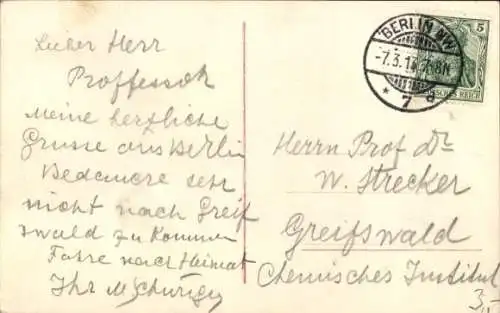 Lieber Herr
Proffessor
Meine herzliche
Grüsse aus Berlin
Bedauere sehr
nicht nach Greif
swald zu kommen
Fahre nach Heimat
Ihr
BERLIN NW
-7.3.1 7-8N
* 7 d
5
DEUTSCHES REICH
Herrn Prof Dr
W. Strecker
Greifswald
Chemisches Institut
3,-